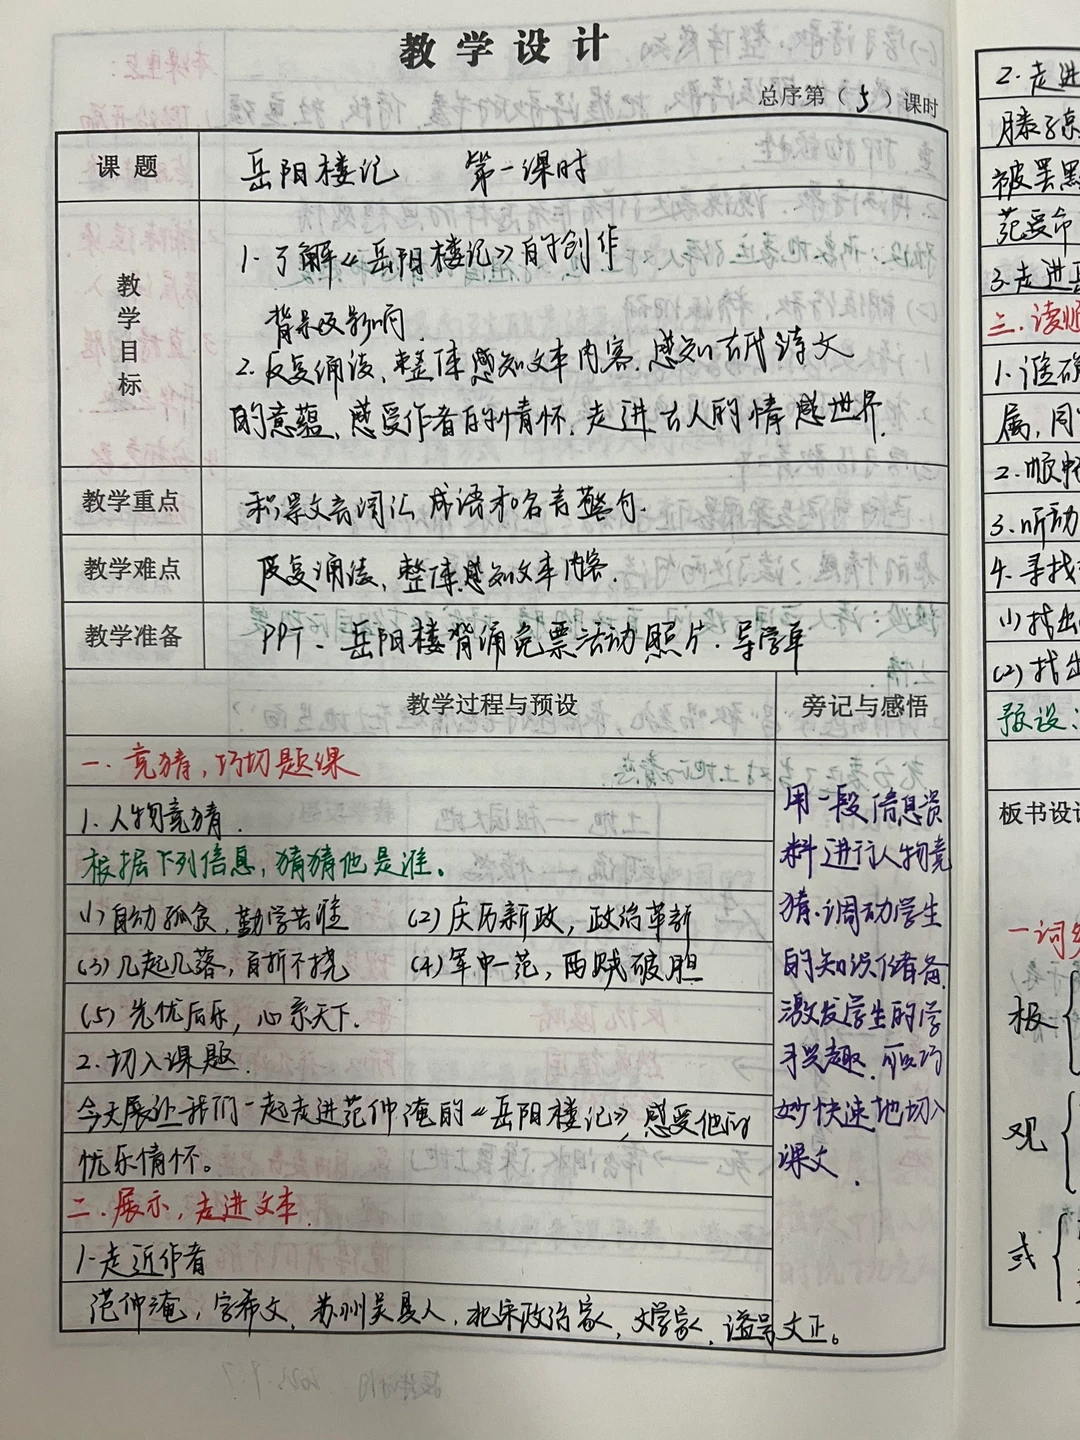 教学设计
总序第（5）课时
课题 岳阳楼记 第一课时
教学目标
1.了解《岳阳楼记》的创作
背景及影响
2.反复诵读、整体感知文本内容.感知古代诗文
的意蕴、感受作者的情怀.走进古人的情感世界.
教学重点 积累文言词汇、成语和名言警句.
教学难点 反复诵读、整体感知文本内容.
教学准备 PPT、岳阳楼背诵免票活动照片.导学单
教学过程与预设 旁记与感悟
一.竞猜，巧切题课
1.人物竞猜.
根据下列信息,猜猜他是谁。
(1)自幼孤食,勤学苦难 (2)庆历新政，政治革新
(3)几起几落，百折不挠 (4)军中一范，西贼破胆
(5)先忧后乐，心系天下.
2.切入课题.
今天展让我们一起走进范仲淹的《岳阳楼记》,感受他的
忧乐情怀。
二.展示,走进文本.
1.走近作者
范仲淹，字希文、苏州吴县人、北宋政治家、文学家、谥号文正。
用一段信息资
料进行人物竞
猜.调动学生
的知识储备.
激发学生的学
习兴趣.可以巧
妙快速地切入
课文.
2.走进
被罢
范受命
3.走进
三.读
1.准确
属,同
2.顺畅
3.听动
4.寻找
(1)找出
(2)找出
预设:
板书设计
一词
板
观
或